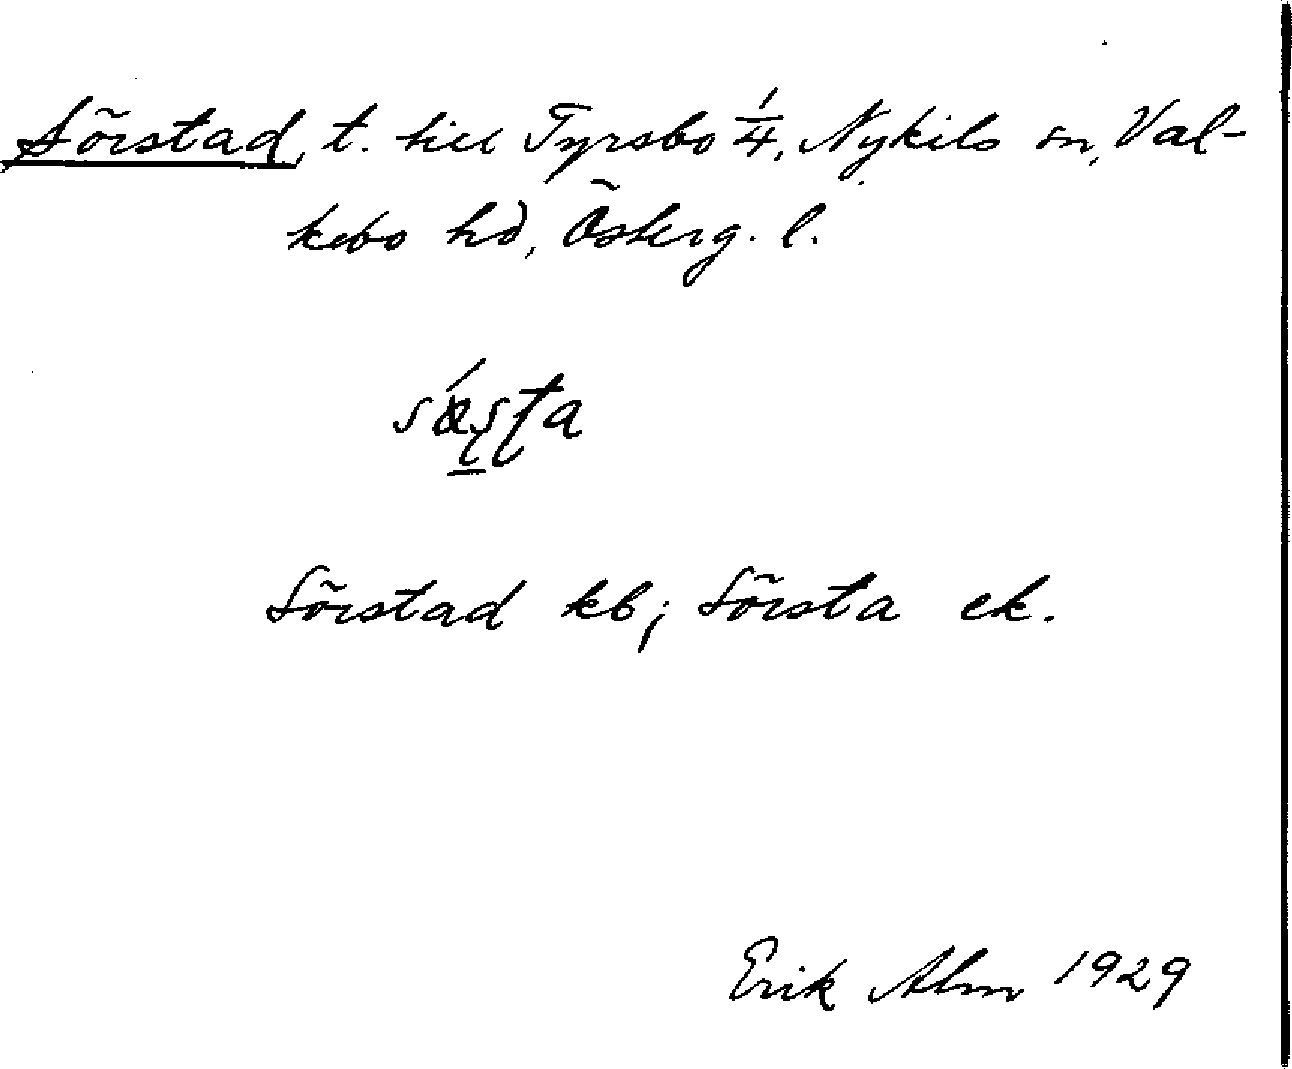 Sörstad, t. till Tyrsbo 1/4, Nykils sn, Val-
kebo hd, Österg. l.
Sörstad kb; Sörsta ek.
Erik Alm 1929